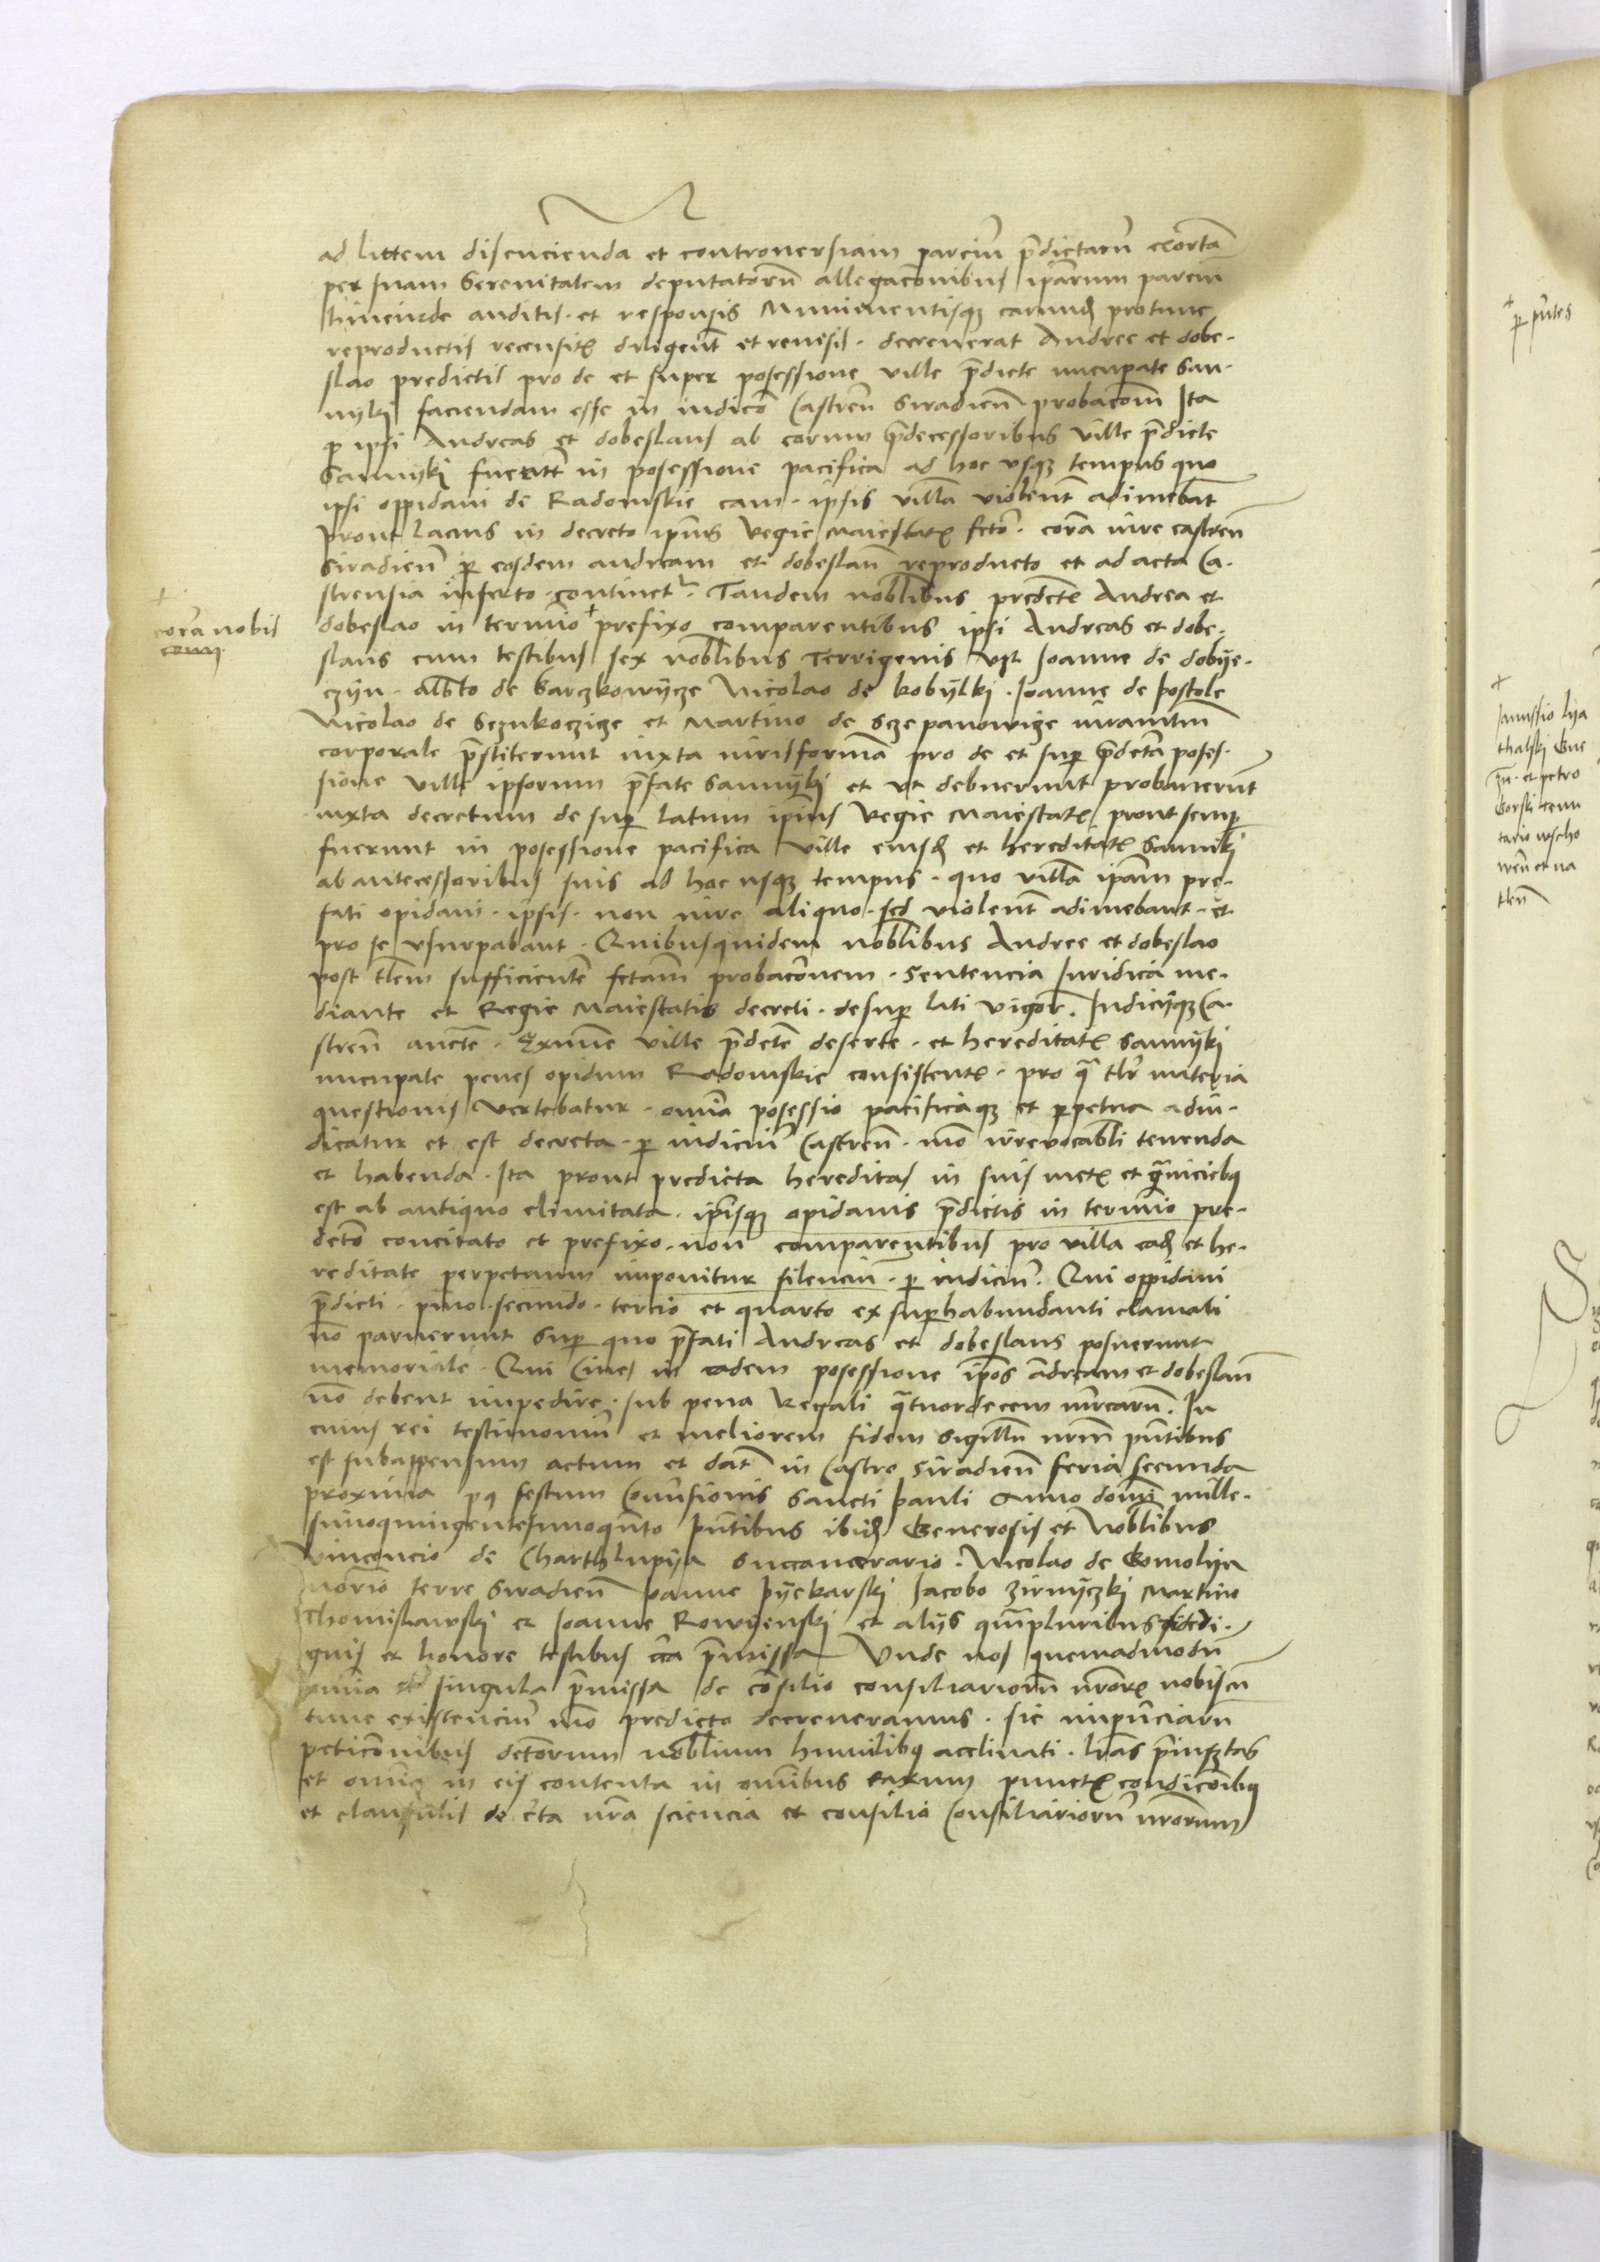 ad littem discucienda et controversiam parciũ p̃dictarũ exortã
per suam Serenitatem deputatorũ allegacõnibus ip̃arum parciũ
hincinde auditis · et responsis Munimentisqꝫ earundẽ protunc
reproductis recensitis diligent̃ et revisis · decreverat Andree et dobe-
slao predictis pro de et super possessione ville p̃dicte nuncupate San-
nyki faciendam esse in iudicio Castreñ Siradieñ probacõm Ita
ꝙ ipsi Andreas et dobeslaus ab eorum p̃decessoribus ville p̃dicte
Sannyki fuerũt in possessione pacifica ad hoc usqꝫ tempus quo
ipsi oppidani de Radomskie eam · ipsis villã violent̃ adimebãt
prout lacius in decreto ip̃ius Regie Maiestatis fcto · corã iure castreñ
Siradieñ p eosdem andream et dobeslaũ reproducto et ad acta Ca-
strensia inserto continetᷣ · Tandem nobilibus predict̃ Andrea et
dobeslao in termiõ + prefixo comparentibus ipsi Andreas et dobe-
slaus cum testibus sex nobilibus Terrigenis vꝫ Joanne de dobye-
czyn · alb̃to de Sarczkowycze Nicolao de kobylki · Joanne de postole
Nicolao de Seznkoczicze et Martino de Sczepanowicze iuramentũ
corporale p̃stiterunt iuxta iuris formã pro de et sup p̃dctã posses-
sione ville ipsorum p̃fate Sannyki et ut debuerunt probaverũt
iuxta decretum de sup latum ip̃ius Regie Maiestatis prout semp
fuerunt in posessione pacifica ville eiusdẽ et hereditatis Sanniki
ab antecessoribus suis ad hoc usqꝫ tempus · quo villã ip̃am pre-
fati opidani · ipsis · non iure aliquo · sed violent̃ adimebant · et
pro se usurpabant · Quibusquidem nobilibus Andree et dobeslao
post tlẽm sufficientẽ fctam probacõnem · Sentencia Juridica me-
diante et Regie Maiestatis decreti · desup lati vigore · Judiciiqꝫ Ca-
streñ auctẽ · Exnunc ville p̃dctẽ deserte · et hereditatis Sannyki
nuncupate penes opidum Radomskie consistentis · pro qua tlr materia
questionis vertebatur · omia possessio pacificaqꝫ et ppetua adiu-
dicatur et est decreta · p iudiciũ Castreñ · mõ irrevocabli tenenda
et habenda · Ita prout predicta hereditas in suis metis et graniciebꝫ
est ab antiquo elimitata · ip̃isqꝫ opidanis p̃dictis in termiõ pre-
dctõ concitato et prefixo · non comparentibus pro villa eadẽ et he-
reditate perpetuum imponitur silenciũ · p iudiciũ · Qui oppidani
p̃dicti · pmo · secundo · tercio et quarto ex suphabundanti clamati
nõ paruerunt Sup quo p̃fati Andreas et dobeslaus posuerunt
memoriale · Qui Cives in eadem posessione ip̃os andream et dobeslaũ
nõ debent impedire · sub pena Regali quatuordecem mrcarũ · In
cuius rei testimoniũ et meliorem fidem Sigillũ nr̃m pñtibus
est subappensum actum et dat̃ in Castro Siradieñ feria secunda
proxima pꝰ festum Cõnversionis Sancti pauli Anno domi mille-
simoquingentesimoqũto pñtibus ibidẽ Generosis et Noblibus
vincencio de Charthlupya Succamerario · Nicolao de Gomolya
Notrio terre Siradieñ Joanne pyekarski Jacobo zirnyczki Martino
Thomislawski et Joanne Rowyenski et alijs quampluribus fidedi-
gnis et honore testibus circa p̃missa Unde nos quemadmodũ
omnia et singula p̃missa de cõsilio consiliariorũ nr̃orum nobiscũ
tunc existenciũ mõ predicto decreveramus · sic impenciarũ
peticõnibus dctõrum noblium humilibꝫ acclinati · lrãs p̃insertas
et omnia in eis contenta in omnibus earum punctis condicõibꝫ
et clausulis de crta nra sciencia et consilio Consiliariorũ nr̃orum
+
corã nobis
+
p pñtes
+
Janussio lya
thalski Gne
et petro
Gorski
tario wscho
weñ et na
tleñ